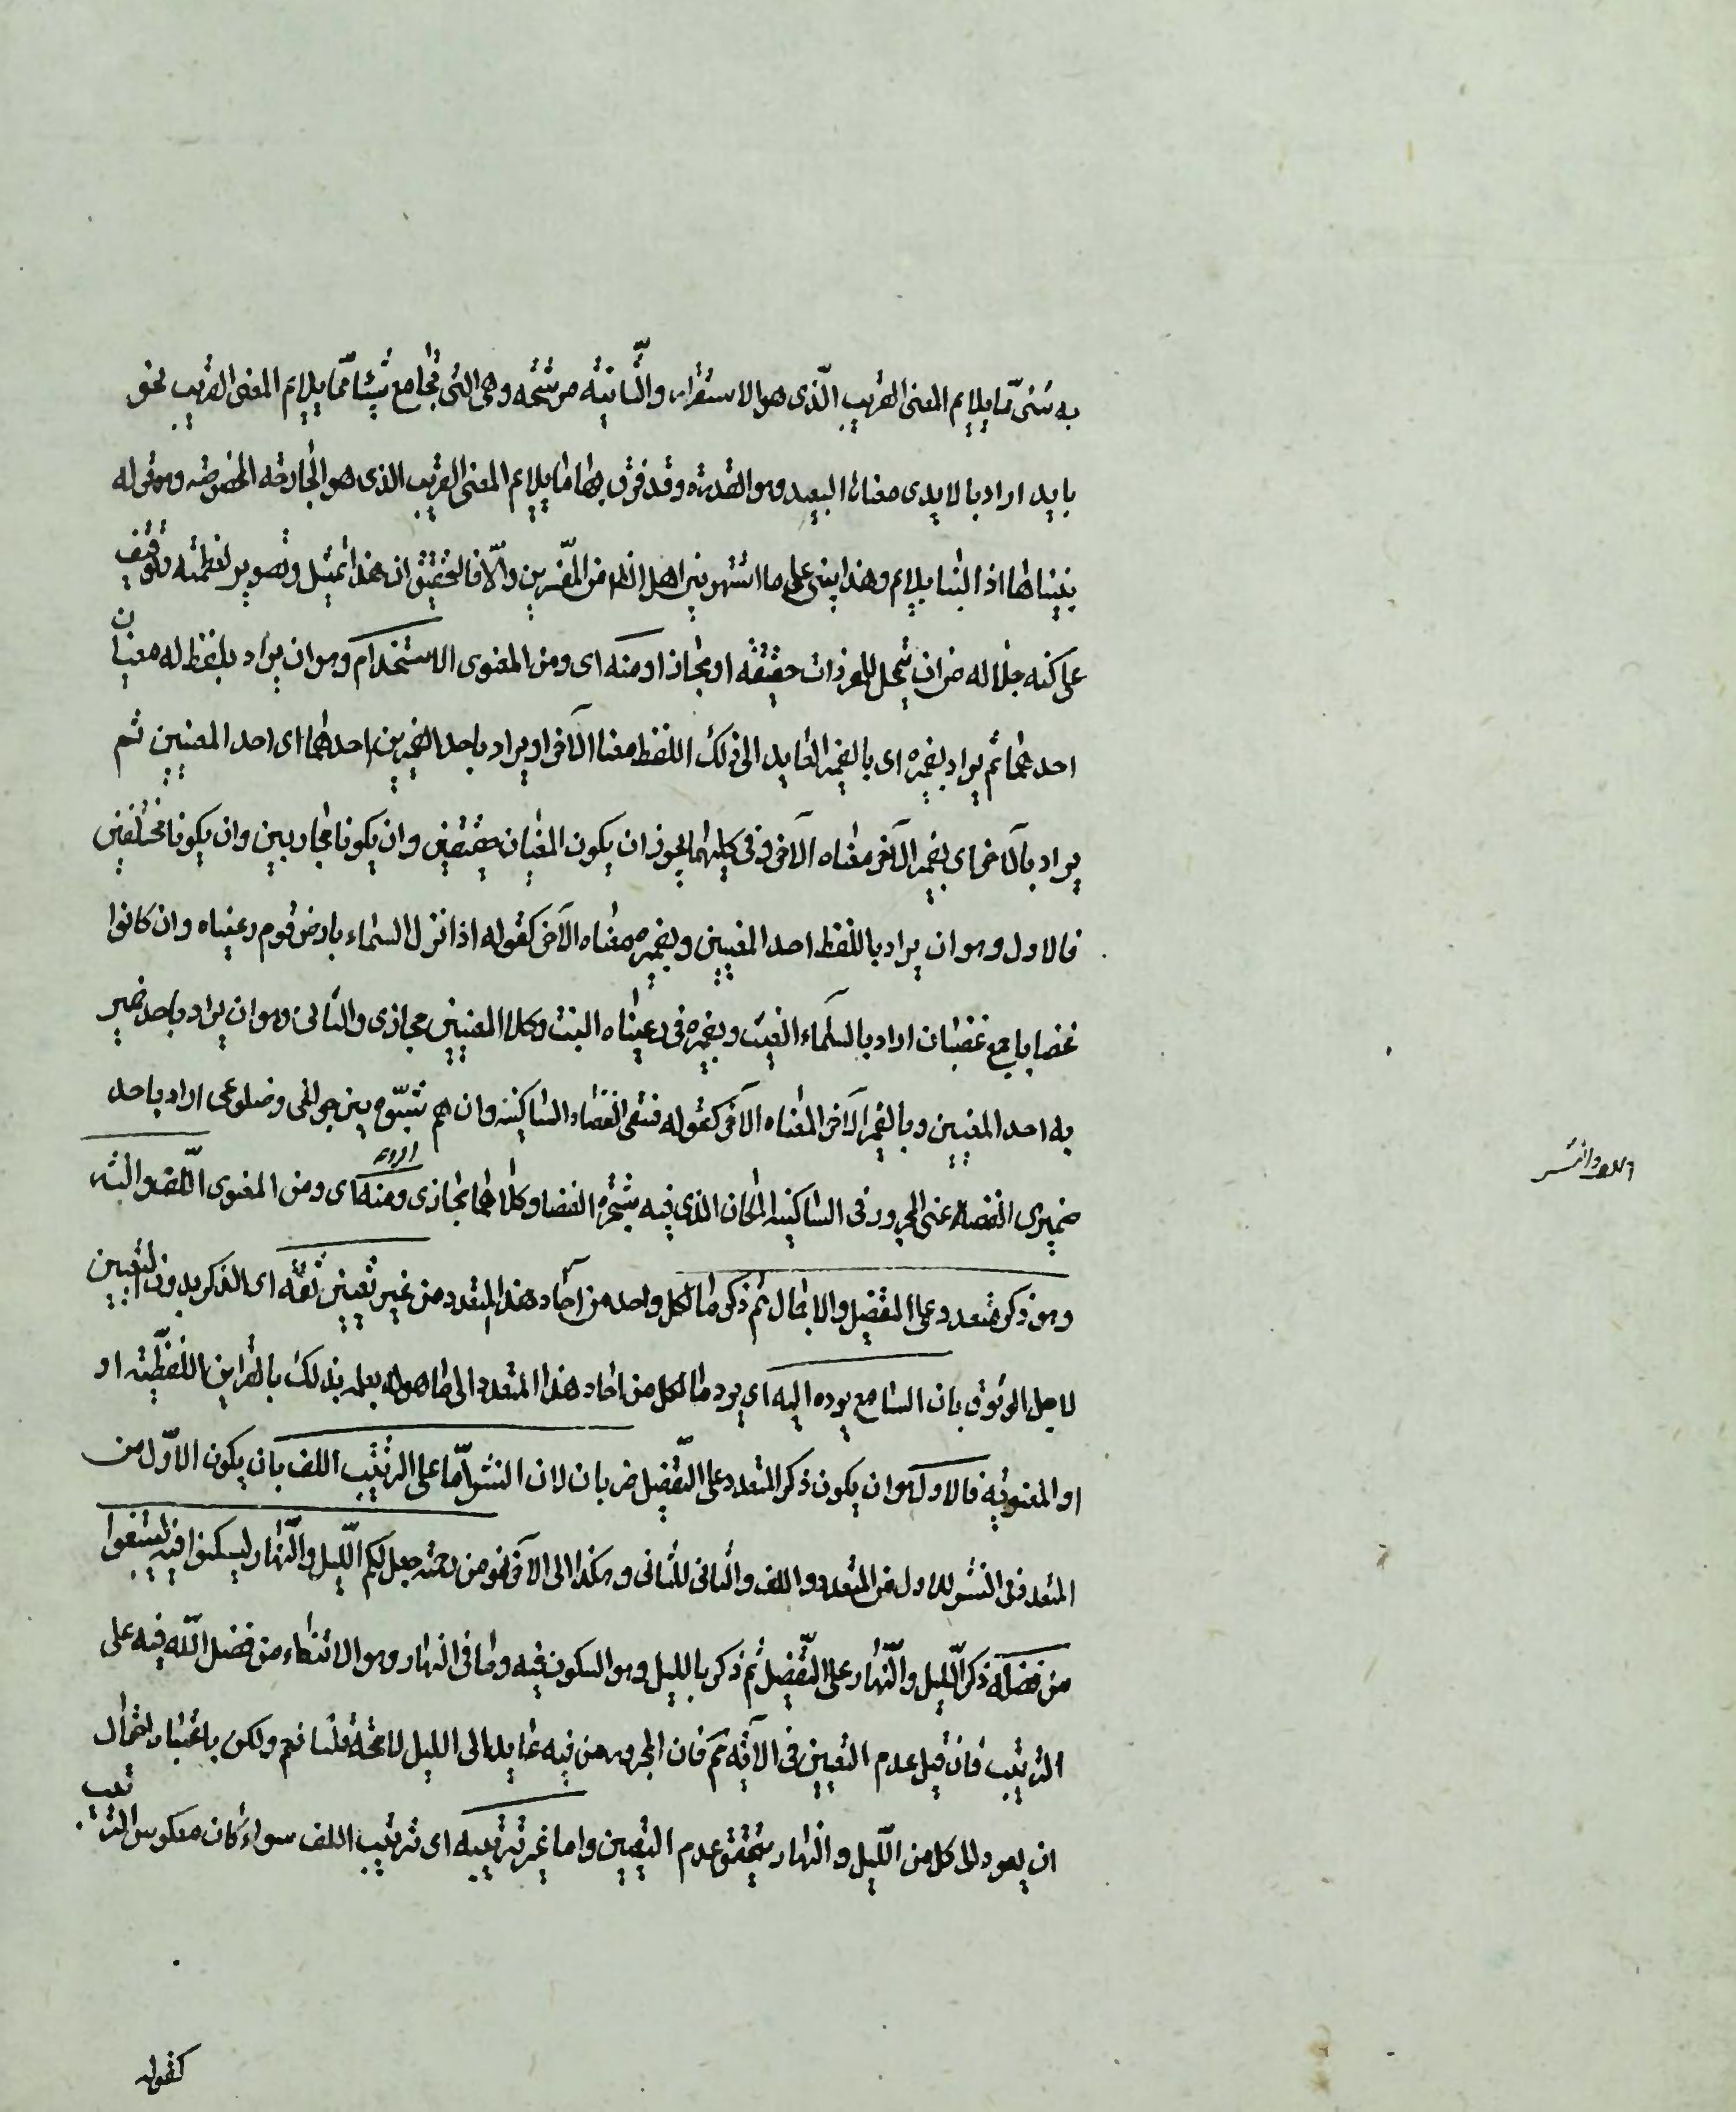 به شىء مما يلايم المعنى القريب الّذى هو الاستقرار، والثّانية مرشحه وهى التى تجامع شيئا ممّا يلايم المعنى القريب نحو
بايد اراد بالايدى معناه البعيد وهو القدرة وقد قرن بها ما يلايم المعنى القريب الذى هو الجارحة المخصوصه وهو قوله
بنيناها اذ البنا يلايم وهذا يبنى على ما اشتهر بين اهل الظاهر من المفسّرين والّا فالتحقيق ان هذا تمثيل وتصوير لعظمته وتوقيف
على كنه جلاله من ان يتمحل للمفردات حقيقة او مجازا ومنه اى ومن المعنوى الاستخدام وهو ان يراد بلفظ له معنيان
احدهما ثم يراد بضميره اى بالضمير العايد الى ذلك اللفظ معناه الآخر او يراد باحد الضميرين احدهما اى احد المعنيين ثم
يراد بالآخر اى بضميره الآخر معناه الآخر وفى كليهما يجوز ان يكون المعنيان حقيقيين وان يكونا مجازيين وان يكونا مختلفين
فالاول وهو ان يراد باللفظ احد المعنيين وبضميره معناه الآخر كقوله اذا نزل السماء بارض قوم رعيناه وان كانوا
غضابا جمع غضبان اراد بالسماء الغيث وبضميره فى رعيناه النبت وكلا المعنيين مجازى والثانى وهو ان يراد باحد ضمير
به احد المعنيين وبالضمير الآخر المعناه الآخر كقوله فسقى الغضاء والساكنيه وان هم شبّوه بين جوانحى وضلوعى اراد باحد
ضميرى الغضا اعنى المجرور فى الساكنيه المكان الذى فيه شجرة الغضا وكلاهما مجازى ومنه اى ومن المعنوى اللّف والنشر
وهو ذكر متعدد على التفصيل والاجمال ثم ذكر ما لكل واحد من آحاد هذا المتعدد من غير تعيين ثقة اى الذكر بدون التعيين
لاجل الوثوق بان السامع يرده اليه اى يرد ما لكل من احاد هذا المتعدد الى ما هو له بعلمه بذلك بالقراين اللفظيّة او
او المعنويّة فالاول وهو ان يكون ذكر المتعدد على التّفصيل ضربان لان النشر امّا على الترتيب اللف بان يكون الاوّل من
المتعدد فى النشر للاول من المتعدد و اللف والثانى للثانى وهكذا الى الآخر نحو من رحمته جعل لكم اللّيل والنّهار ليسكنوا فيه ليبتغوا
من فضله ذكر اللّيل والنّهار على التّفصيل ثم ذكر بالليل وهو السكون فيه وما فى النهار وهو الابتغاء من فضل اللّه فيه على
الترتيب فان قيل عدم التعيين فى الآية ثم فان المجرور من فيه عايد الى الليل لامحة قلنا نعم ولكن باعتبار احتمال
ان يعود الى كل من اللّيل والنهار يتحقق عدم التعيين واما غير ترتيبه اى ترتيب اللف سواء كان معكوس الترتيب
كقوله
اللف والنشر